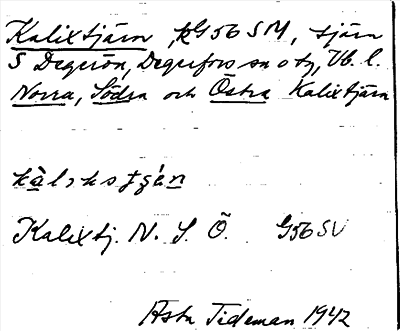 Kalixtjärn, G56SM, tjärn
S Degerön, Degerfors sn o tg, Vb. l.
Norra, Södra och Östra Kalixtjärn
Kalixtj. N. S. Ö. G56SV
Asta Tideman 1942